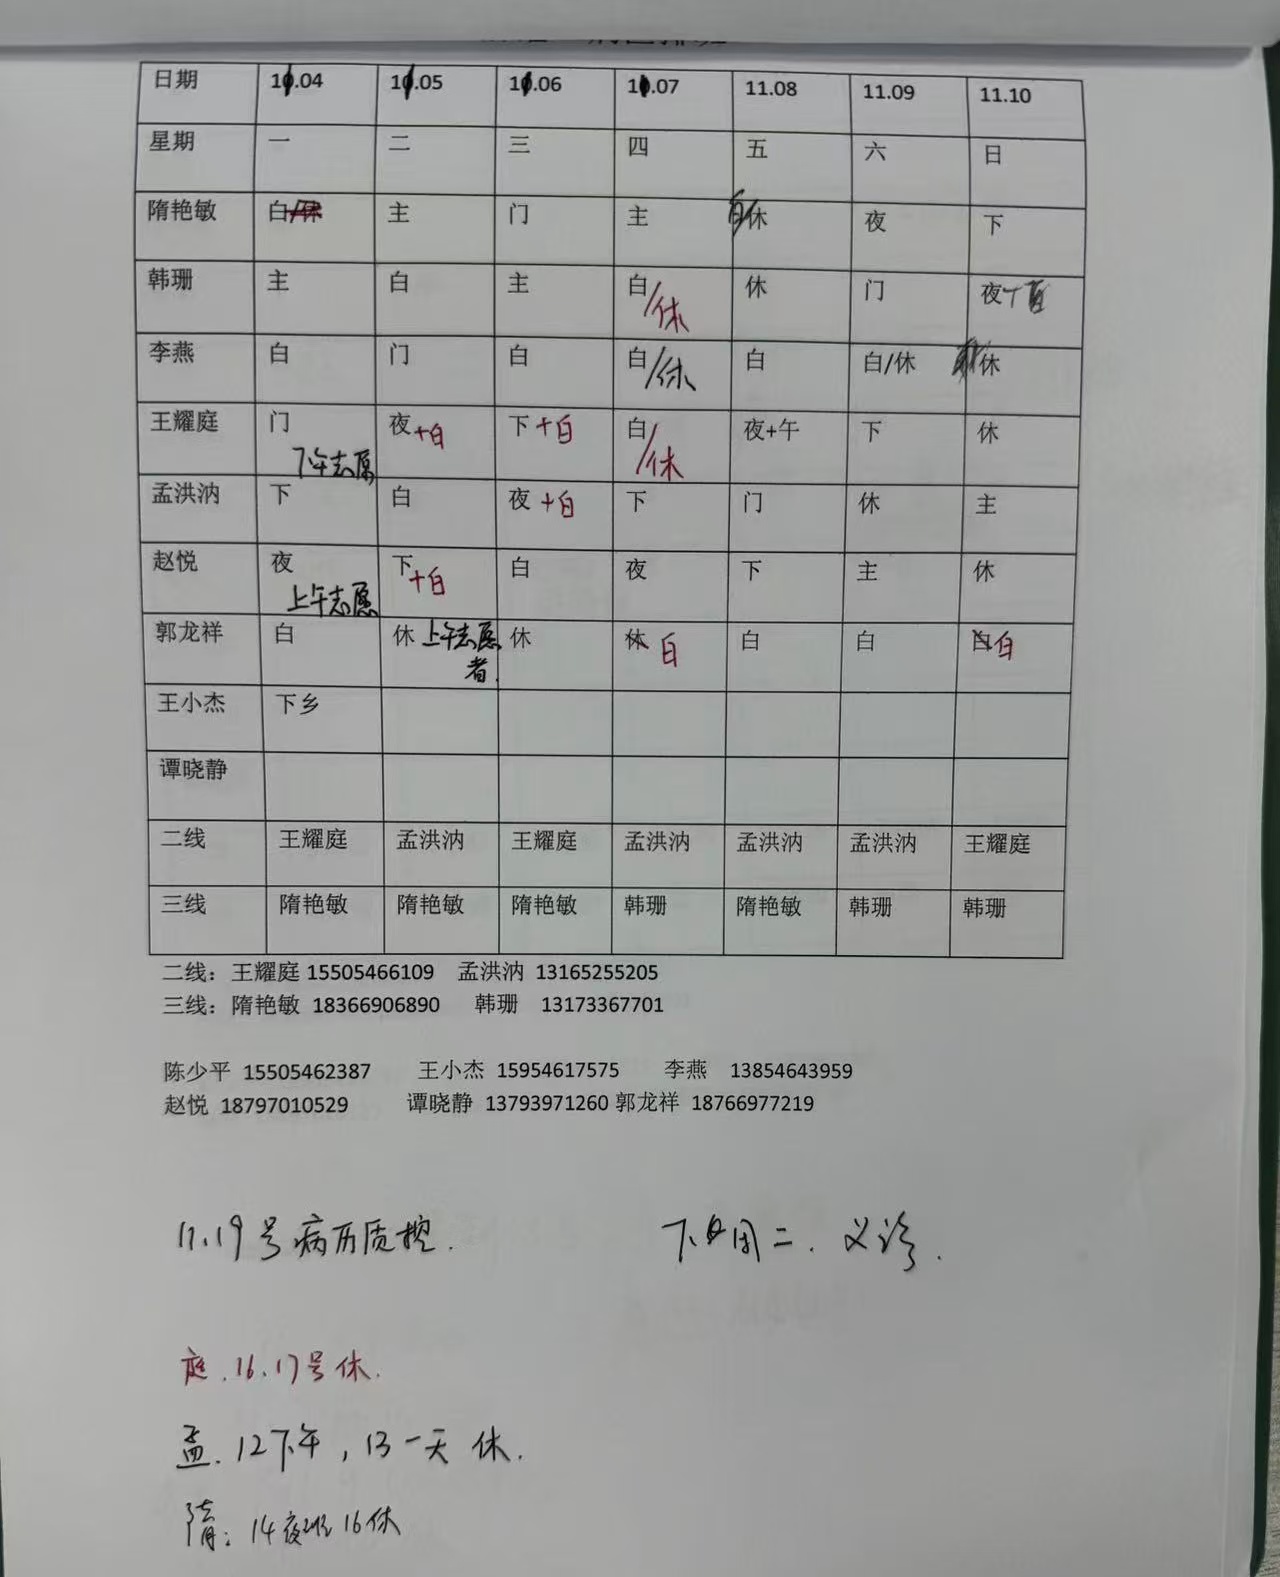 日期 11.04 11.05 11.06 11.07 11.08 11.09 11.10
星期 一 二 三 四 五 六 日
隋艳敏 白/休 主 门 主 白/休 夜 下
韩珊 主 白 主 白/休 休 门 夜
李燕 白 门 白 白/休 白 白/休 休
王耀庭 门 下午志愿 夜+白 下+白 白/休 夜+午 下 休
孟洪汭 下 白 夜+白 下 门 休 主
赵悦 夜 上午志愿 下+白 白 夜 下 主 休
郭龙祥 白 休 上午志愿者 休 休 白 白 白 白
王小杰 下乡
谭晓静
二线 王耀庭 孟洪汭 王耀庭 孟洪汭 孟洪汭 孟洪汭 王耀庭
三线 隋艳敏 隋艳敏 隋艳敏 韩珊 隋艳敏 韩珊 韩珊
二线：王耀庭 15505466109 孟洪汭 13165255205
三线：隋艳敏 18366906890 韩珊 13173367701
陈少平 15505462387 王小杰 15954617575 李燕 13854643959
赵悦 18797010529 谭晓静 13793971260 郭龙祥 18766977219
11.19号病历质控. 下周二.义诊.
庭.16.17号休.
孟.12下午,13一天 休.
隋:14夜班16休